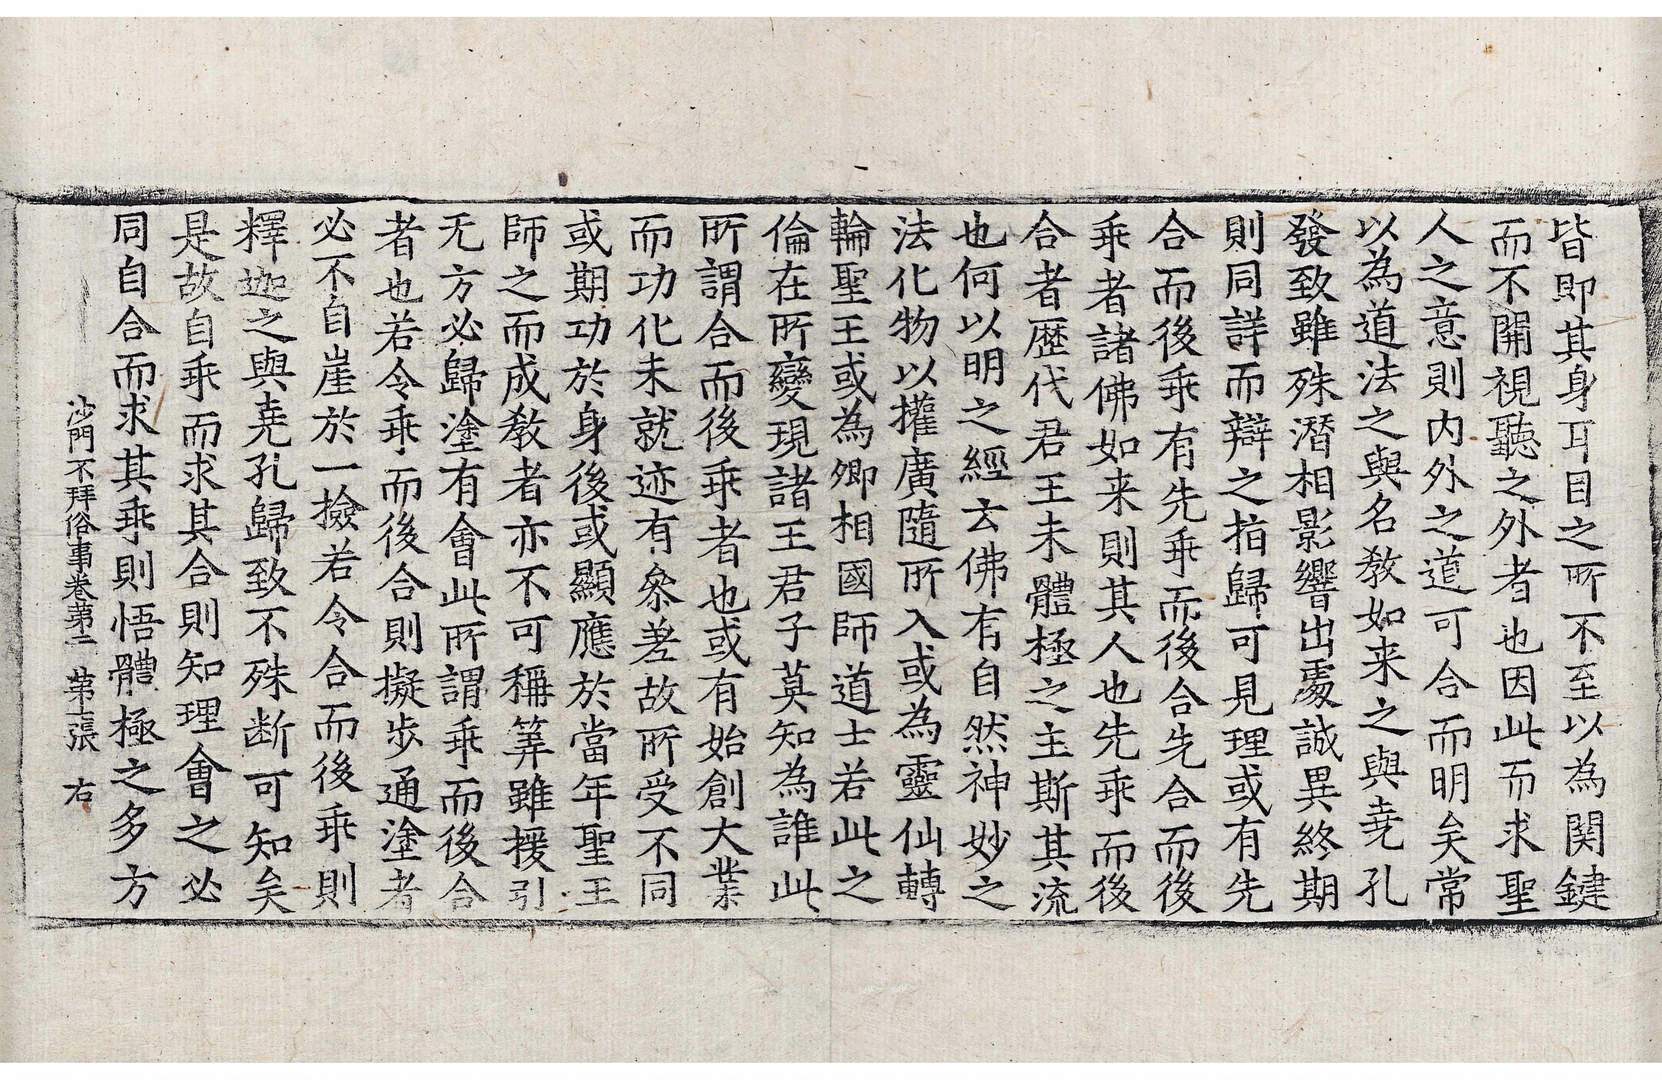 皆即其身耳目之所不至以為関鍵
而不開視聽之外者也因此而求聖
人之意則内外之道可合而明矣常
以為道法之與名教如来之與堯孔
發致雖殊潜相影響出處誠異終期
則同詳而辯之指歸可見理或有先
合而後乖有先乖而後合先合而後
乖者諸佛如来則其人也先乖而後
合者歷代君王未體極之主斯其流
也何以明之經云佛有自然神妙之
法化物以權廣隨所入或為靈仙轉
輪聖王或為卿相國師道士若此之
倫在所變現諸王君子莫知為誰此
所謂合而後乖者也或有始創大業
而功化未就迹有叅差故所受不同
或期功於身後或顯應於當年聖王
師之而成教者亦不可稱筭雖援引
无方必歸塗有會此所謂乖而後合
者也若令乖而後合則擬步通塗者
必不自崖於一撿若令合而後乖則
釋迦之與堯孔歸致不殊断可知矣
是故自乖而求其合則知理會之必
同自合而求其乖則悟體極之多方
沙門不拜俗事卷第二 第二張 右